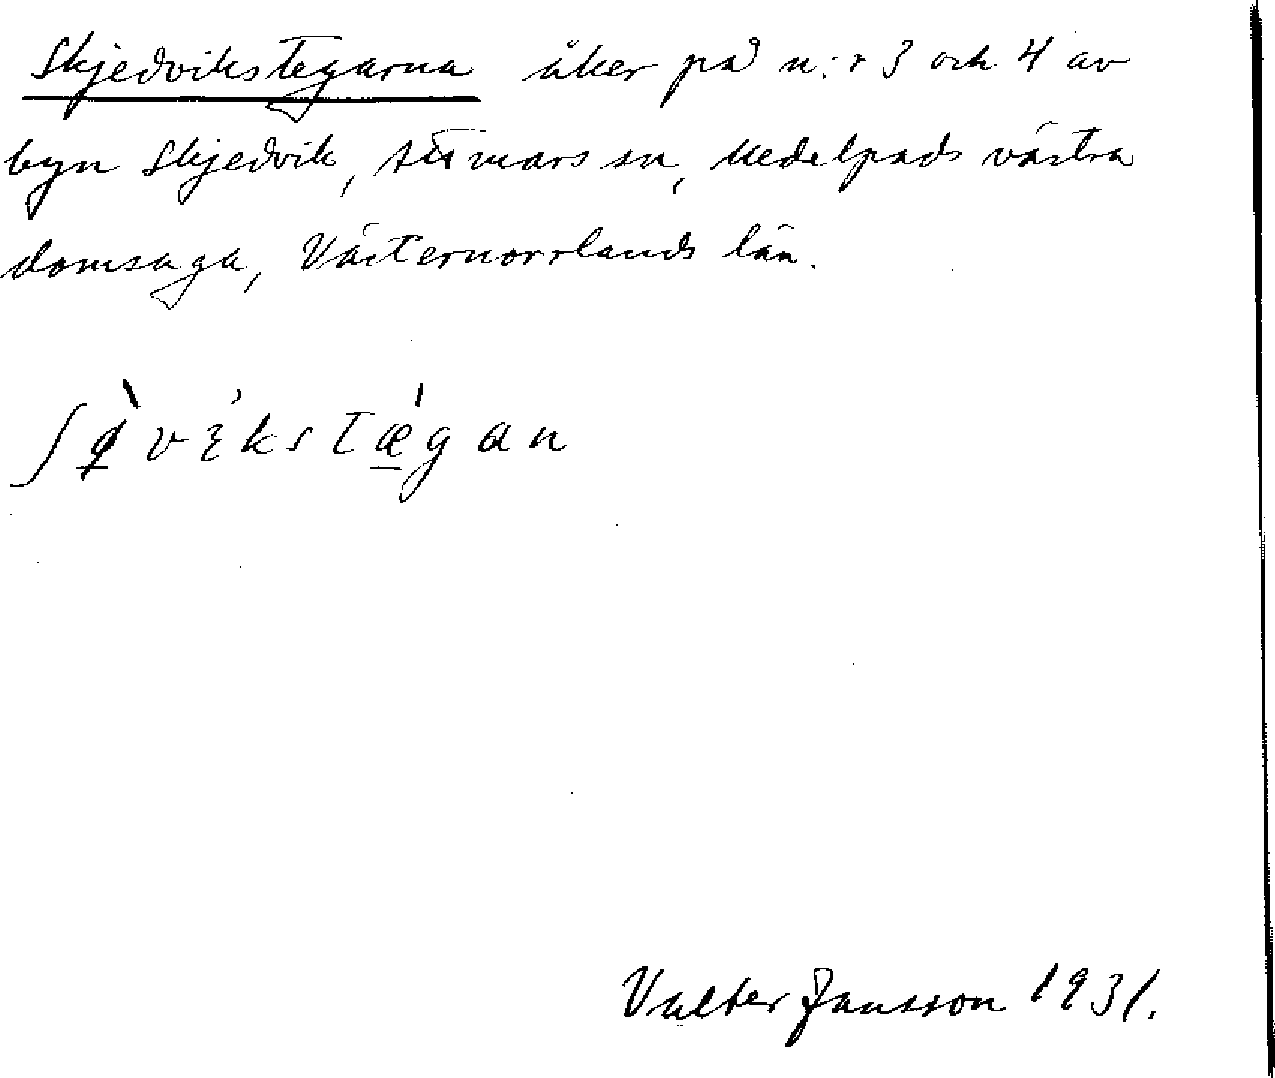 Skjedvikstegarna åker på n:r 3 och 4 av
byn Skjedvik, Attmars sn, Medelpads västra
domsaga, Västernorrlands län.
Valter Jansson 1931.